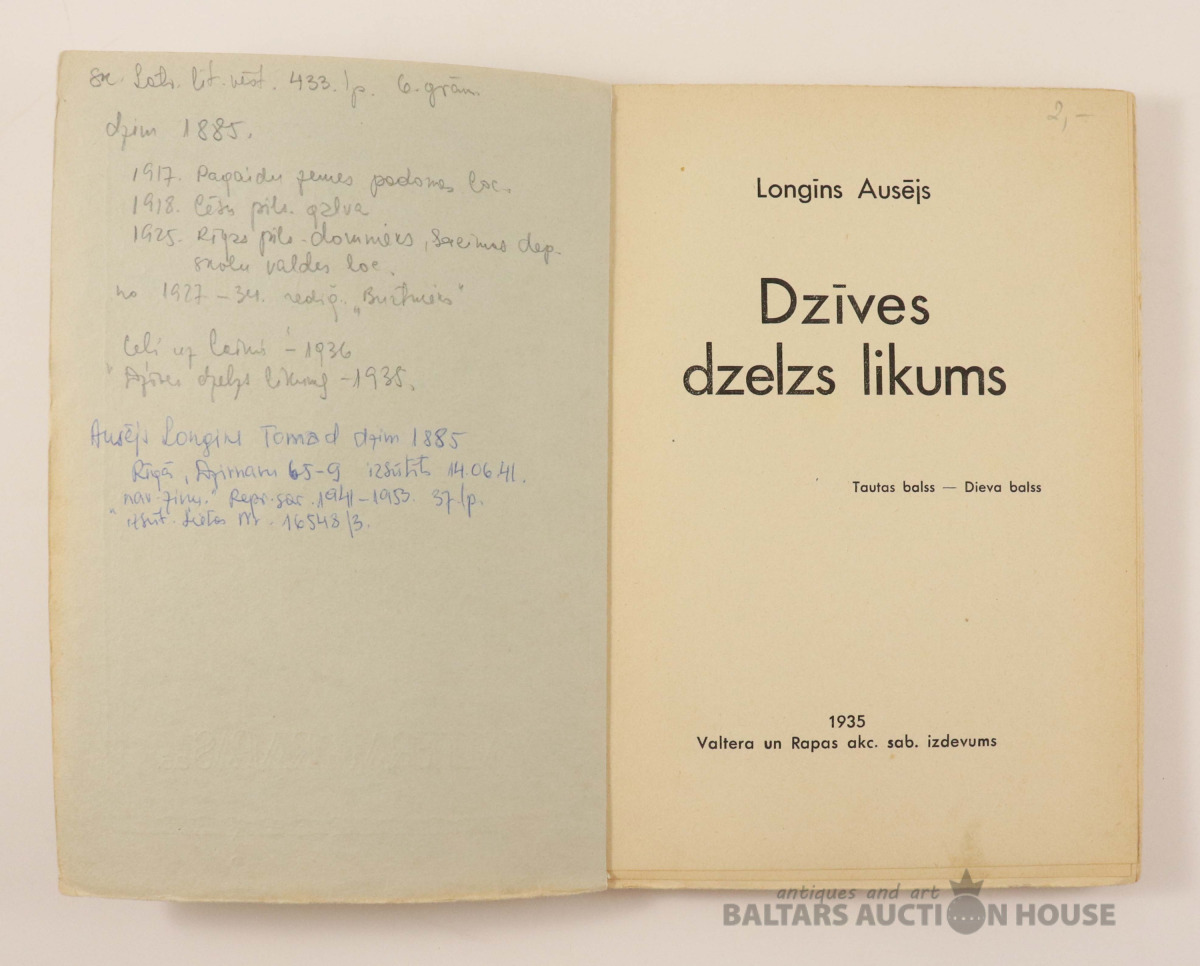 sk. Latv. lit. vēst. 433. lp. 6. grām.
dzim 1885.
1917. Pagaidu zemes padomes loc.
1918. Cēsu pils. galva
1925. Rīgas pils. domnieks, Saeimas dep.
skolu valdes loc.
no 1927 – 34. rediģ. „Burtnieks"
Ceļi uz laimi – 1936
"Dzīves dzelzs likums – 1935.
Ausējs Longins Tomad dzim 1885
Rīgā, Dzirnavu 65-9 izsūtīts 14.06.41.
nav. ziņu." Repr. sar. 1941 – 1953. 37. lp.
" izsūt. Lietas Nr. 16548/3.
2,–
Longīns Ausējs
Dzīves
dzelzs likums
Tautas balss — Dieva balss
1935
Valtera un Rapas akc. sab. izdevums
antiques and art
BALTARS AUCTION HOUSE